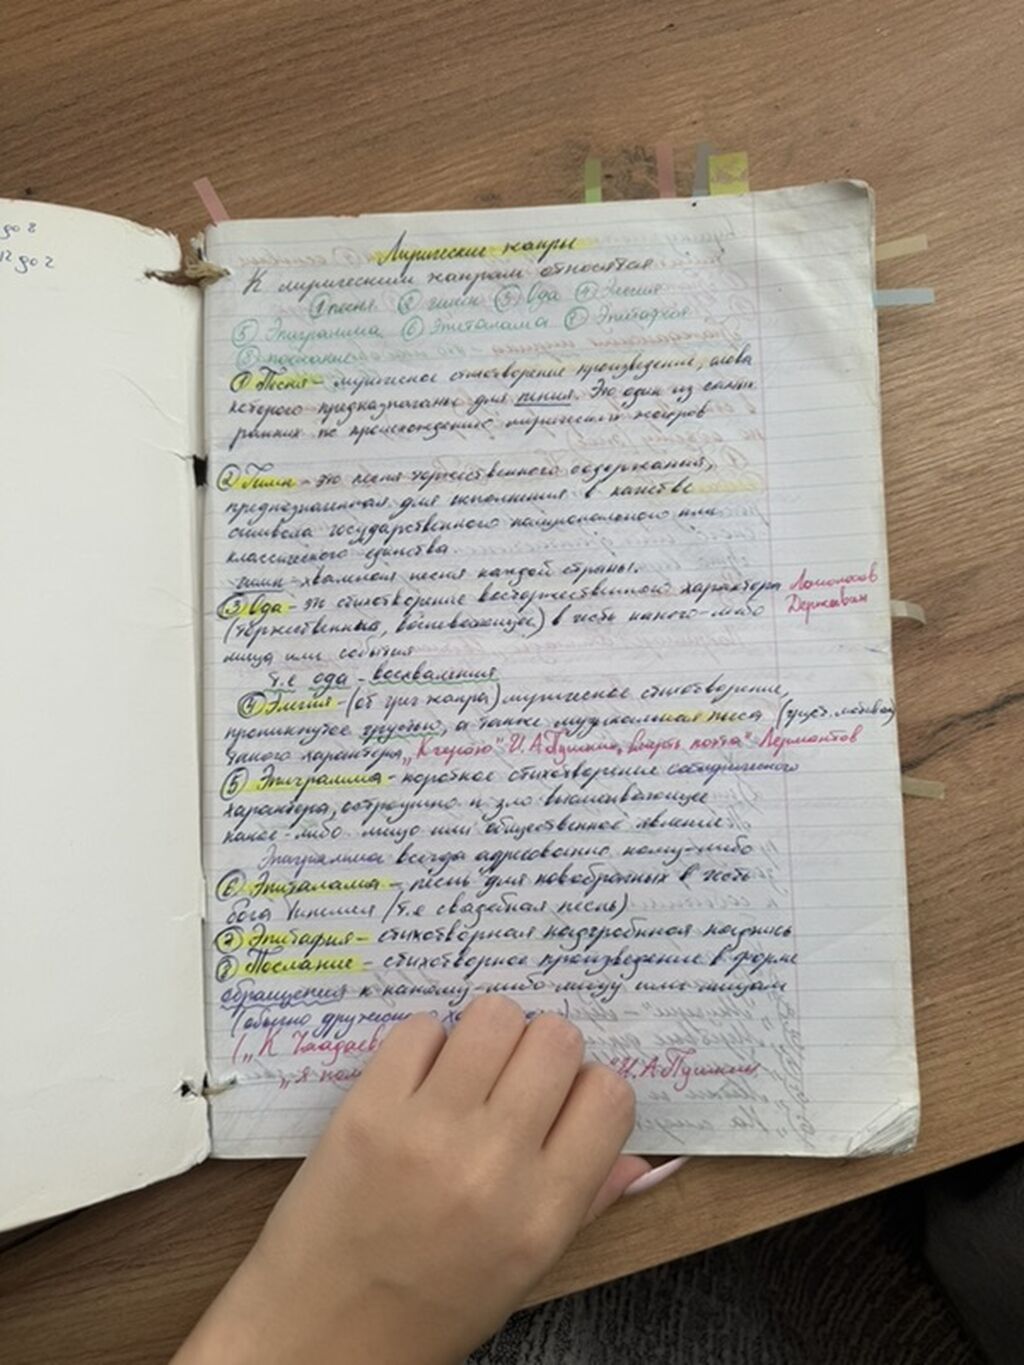 до 8
12 до 2
Лирические жанры
К лирическим жанрам относятся
① песня ② гимн ③ Ода ④ Элегия
⑤ Эпиграмма ⑥ Эпиталама ⑦ Эпитафия
⑧ послание
① Песня - лирическое стихотворение произведение, слова
которого предназначаны для пения. Это один из самых
ранних по происхождению лирических жанров
② Гимн - это песня торжественного содержания,
предназначенная для исполнения в качестве
символа государственного национального или
классического единства.
гимн - хвалебная песня каждой страны.
③ Ода - это стихотворение восторженного характера
Ломоносов
Державин
(торжественный, воспевающее) в честь какого-либо
лица или события
т.е ода - восхваления
④ Элегия - (от греч жанра) лирическое стихотворение,
проникнутое грустью, а также музыкальная пьеса (груст. мотивов)
такого характера „К морю" И.А Пушкин, „Смерть поэта" Лермонтов
⑤ Эпиграмма - короткое стихотворение сатирического
характера, остроумно и зло высмеивающее
какое-либо лицо или общественное явление
Эпиграмма всегда адресованна кому-либо
⑥ Эпиталама - песнь для новобрачных в честь
бога Гименея (т.е свадебная песнь)
⑦ Эпитафия - стихотворная надгробная надпись
⑧ Послание - стихотворное произведение в форме
обращения к какому-либо лицу или лицам
(обычно дружеского
(„К Чаадаев
„Я пом " И.А Пушкин